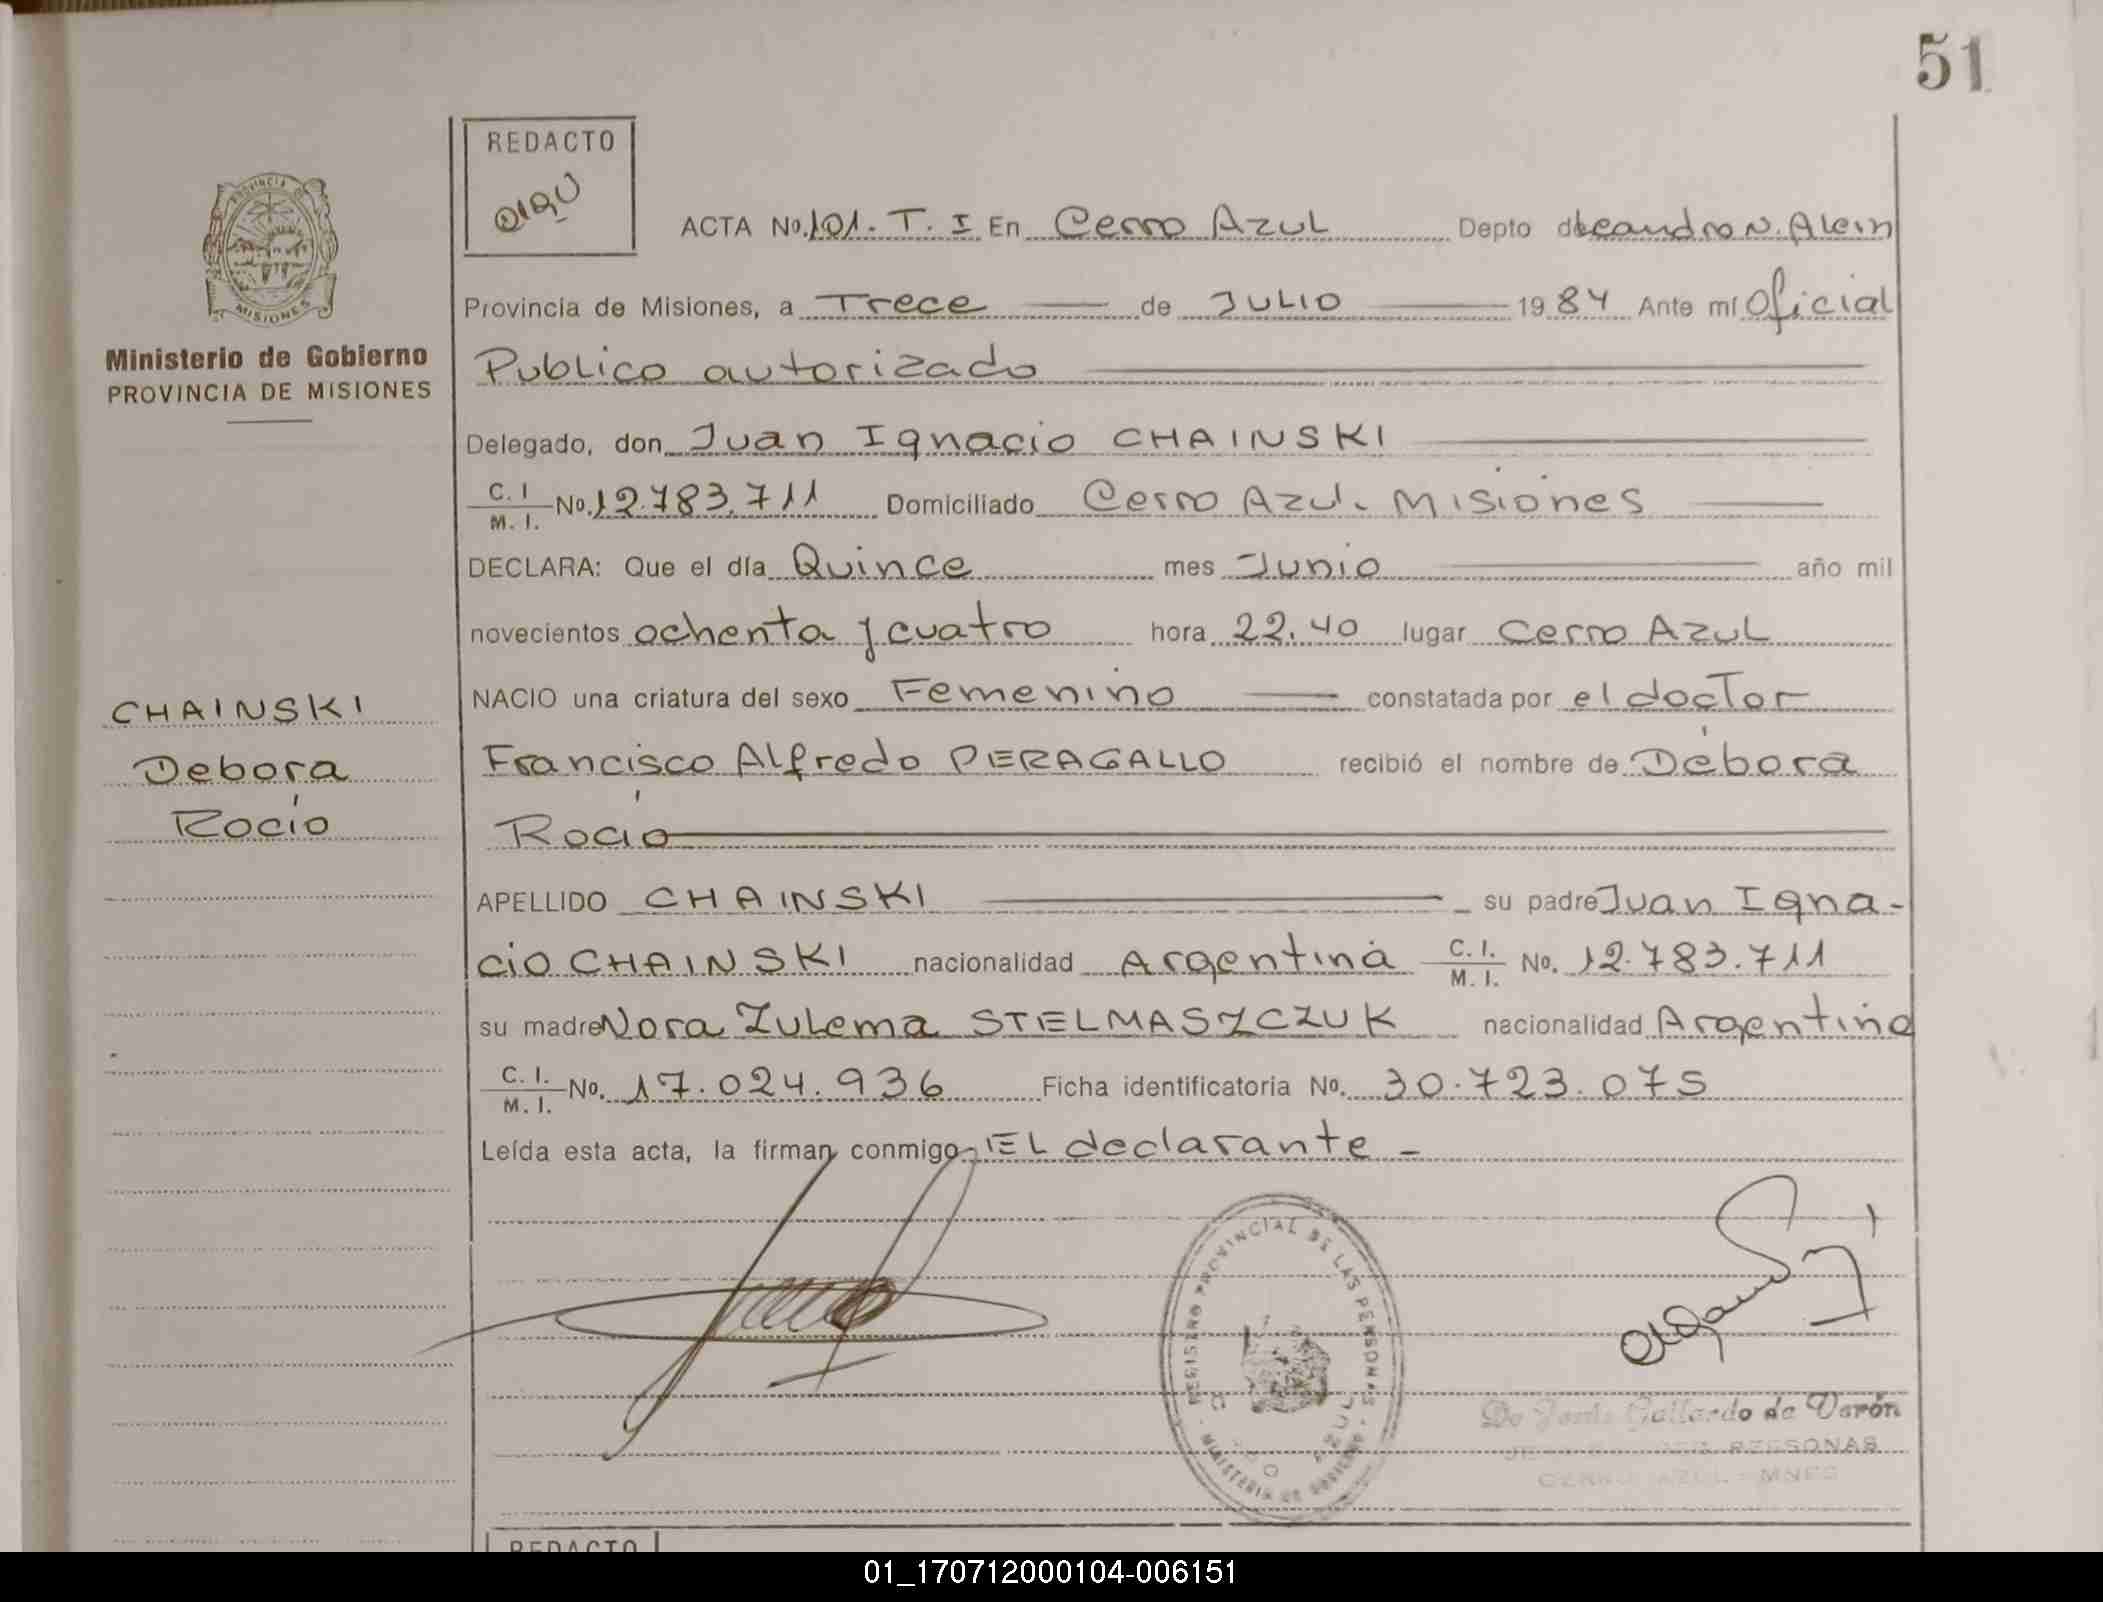 51
REDACTO
PROVINCIA DE
MISIONES
Ministerio de Gobierno
PROVINCIA DE MISIONES
ACTA No. 101. T. I En Cerro Azul Depto de Leandro N. Alem
Provincia de Misiones, a Trece de JULIO 1984 Ante mí Oficial
Publico autorizado
Delegado, don Juan Ignacio CHAINSKI
C. I
M. I. No. 12.783.711 Domiciliado Cerro Azul. Misiones
DECLARA: Que el día Quince mes Junio año mil
novecientos ochenta y cuatro hora 22.40 lugar Cerro Azul
NACIO una criatura del sexo Femenino constatada por el doctor
CHAINSKI
Debora
Rocío
Francisco Alfredo PERAGALLO recibió el nombre de Débora
Rocío
APELLIDO CHAINSKI su padre Juan Igna-
cio CHAINSKI nacionalidad Argentina C. I.
M. I. No. 12.783.711
su madre Nora Zulema STELMASZCZUK nacionalidad Argentina
C. I.
M. I. No. 17.024.936 Ficha identificatoria No. 30.723.075
Leída esta acta, la firman conmigo, El declarante -
REGISTRO PROVINCIAL DE LAS PERSONAS
MINISTERIO DE GOBIERNO
AZUL
Gallardo de Varón
PERSONAS
CERRO AZUL - MNES
REDACTO
01_170712000104-006151